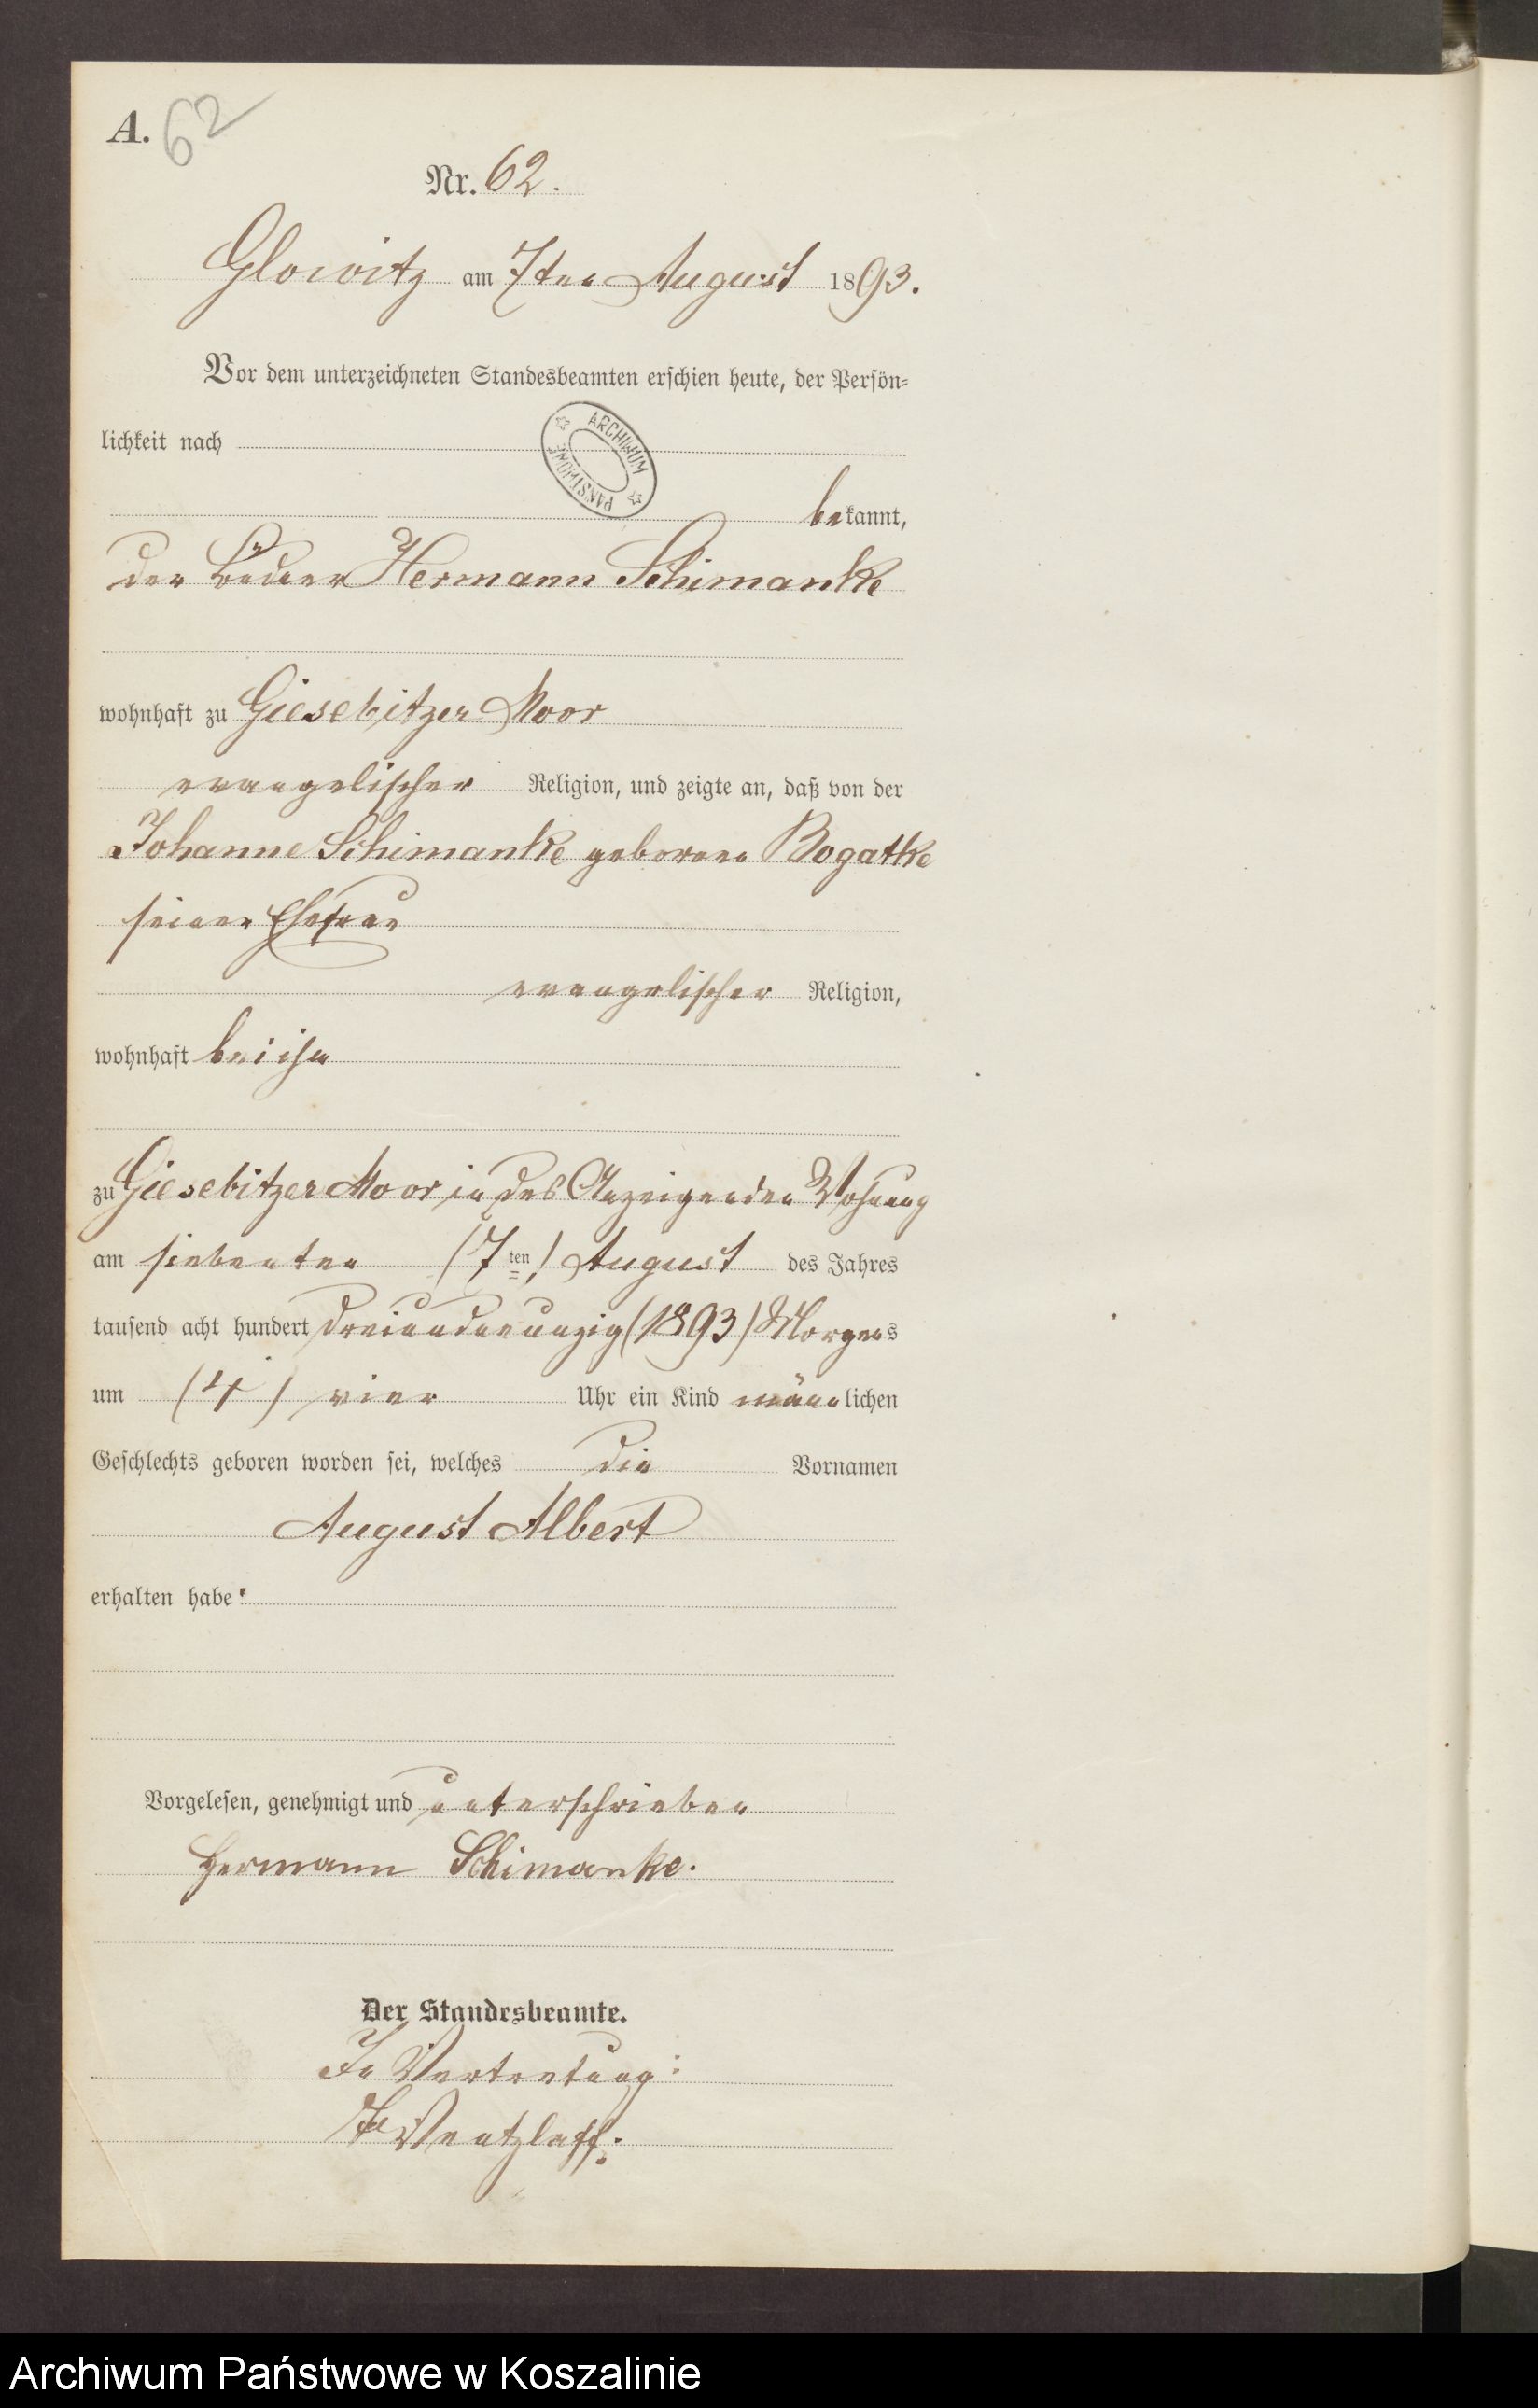 A. 62
Nr. 62.
Glowitz am 7ten August 1893.
Vor dem unterzeichneten Standesbeamten erschien heute, der Persön-
lichkeit nach
ARCHIWUM PAŃSTWOWE
bekannt,
der Bauer Hermann Schimanke
wohnhaft zu Giesebitzer Moor
evangelischer Religion, und zeigte an, daß von der
Johanne Schimanke geborene Bogatke
seiner Ehefrau
evangelischer Religion,
wohnhaft bei ihm
zu Giesebitzer Moor in des Anzeigenden Wohnung
am siebenten (7ten) August des Jahres
tausend acht hundert dreiundneunzig (1893) Morgens
um (4) vier Uhr ein Kind männlichen
Geschlechts geboren worden sei, welches die Vornamen
August Albert
erhalten habe.
Vorgelesen, genehmigt und unterschrieben
Hermann Schimanke.
Der Standesbeamte.
In Vertretung:
Wentzlaff.
Archiwum Państwowe w Koszalinie